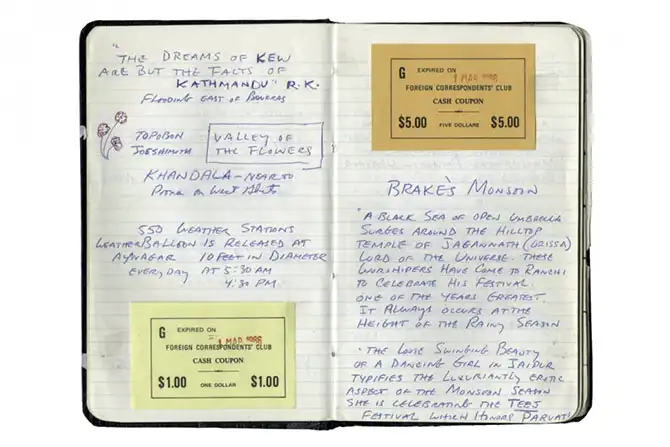 "THE DREAMS OF KEW
ARE BUT THE FACTS OF
KATHMANDU" R.K.
FLOODING EAST OF
TOPOBON
JOESHIMUTH
VALLEY OF
THE FLOWERS
KHANDALA - NEAR TO
on West Ghats
550 WEATHER STATIONS
WEATHER BALLOON IS RELEASED AT
10 FEET IN DIAMETER
EVERYDAY AT 5:30 AM
4:30 PM
G EXPIRED ON
1 MAR 1986
FOREIGN CORRESPONDENTS' CLUB
CASH COUPON
$1.00 ONE DOLLAR $1.00
G EXPIRED ON
1 MAR 1986
FOREIGN CORRESPONDENTS' CLUB
CASH COUPON
$5.00 FIVE DOLLARS $5.00
BRAKE'S MONSOON
"A BLACK SEA OF OPEN UMBRELLA
SURGES AROUND THE HILLTOP
TEMPLE OF JAGANNATH (ORISSA)
LORD OF THE UNIVERSE. THESE
WORSHIPERS HAVE COME TO RANCHI
TO CELEBRATE HIS FESTIVAL.
ONE OF THE YEARS GREATEST.
IT ALWAYS OCCURS AT THE
HEIGHT OF THE RAINY SEASON
SWINGING BEAUTY
OF A DANCING GIRL IN JAIPUR
TYPIFIES THE LUXURIANTLY EROTIC
ASPECT OF THE MONSOON SEASON
SHE IS CELEBRATING THE TEEJ
FESTIVAL WHICH HONORS PARVATI